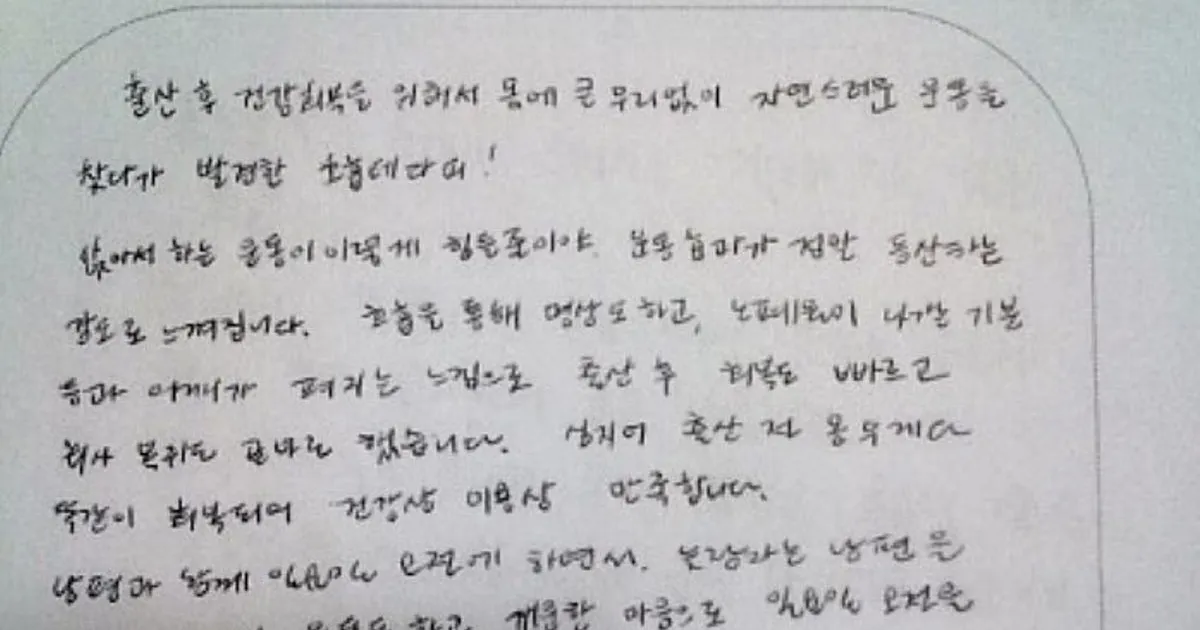 출산 후 건강회복을 위해서 몸에 큰 무리없이 자연스러운 운동을
찾다가 발견한 호흡테라피!
앉아서 하는 운동이 이렇게 힘든줄이야. 운동효과가 정말 등산하는
강도로 느껴집니다. 호흡을 통해 명상도 하고, 노폐물이 나가는 기분
등과 어깨가 펴지는 느낌으로 출산 후 회복도 빠르고
회사 복귀도 곧바로 했습니다. 심지어 출산 전 몸무게다
똑같이 회복되어 건강상 미용상 만족합니다.
남편과 함께 일요일 오전에 하면서. 남편은
하고 개운한 마음으로 일요일 오전을